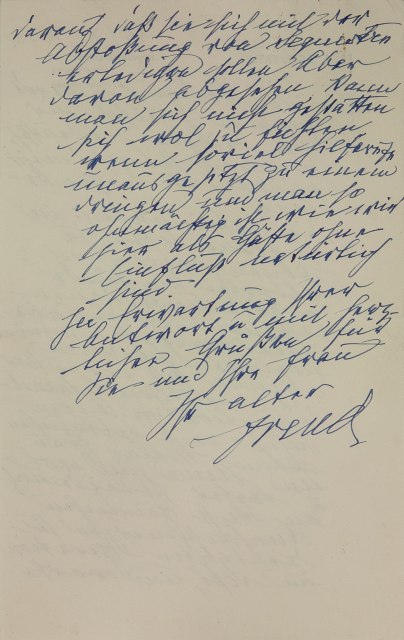 darauf daß Sie sich mit der
Abstoßung von
erledigen sollen Aber
davon abgesehen kann
man sich nicht gestatten
sich wol zu fühlen
wenn soviel Hilferufe
aus jetzt zu einem
dringen und man so
ohnmächtig ist wie wir
hier als Gäste ohne
Einfluß natürlich
sind
In Erwartung Ihrer
Antwort u mit herz
lichen Grüßen für
Sie und Ihre Frau
Ihr alter
Freud